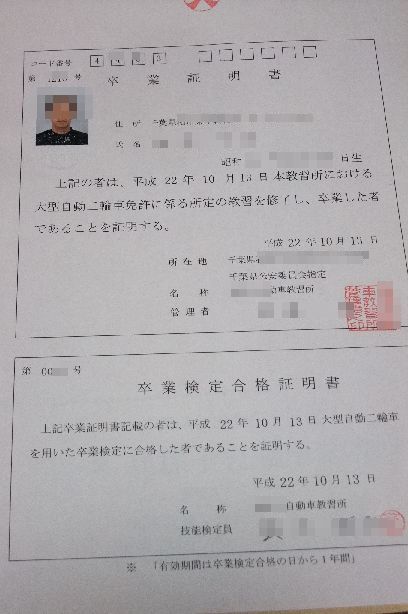 コード番号 4
第 号 卒業証明書
住所 千葉県
氏名
昭和 日生
上記の者は、平成 22 年 10 月 13 日本教習所における
大型自動二輪車免許に係る所定の教習を修了し、卒業した者
であることを証明する。
平成 22 年 10 月 13 日
所在地 千葉県
千葉県公安委員会指定
名称 車教習所
管理者
第 00 号
卒業検定合格証明書
上記卒業証明書記載の者は、平成 22 年 10 月 13 日大型自動二輪車
を用いた卒業検定に合格した者であることを証明する。
平成 22 年 10 月 13 日
名称 自動車教習所
技能検定員
※ 「有効期間は卒業検定合格の日から1年間」